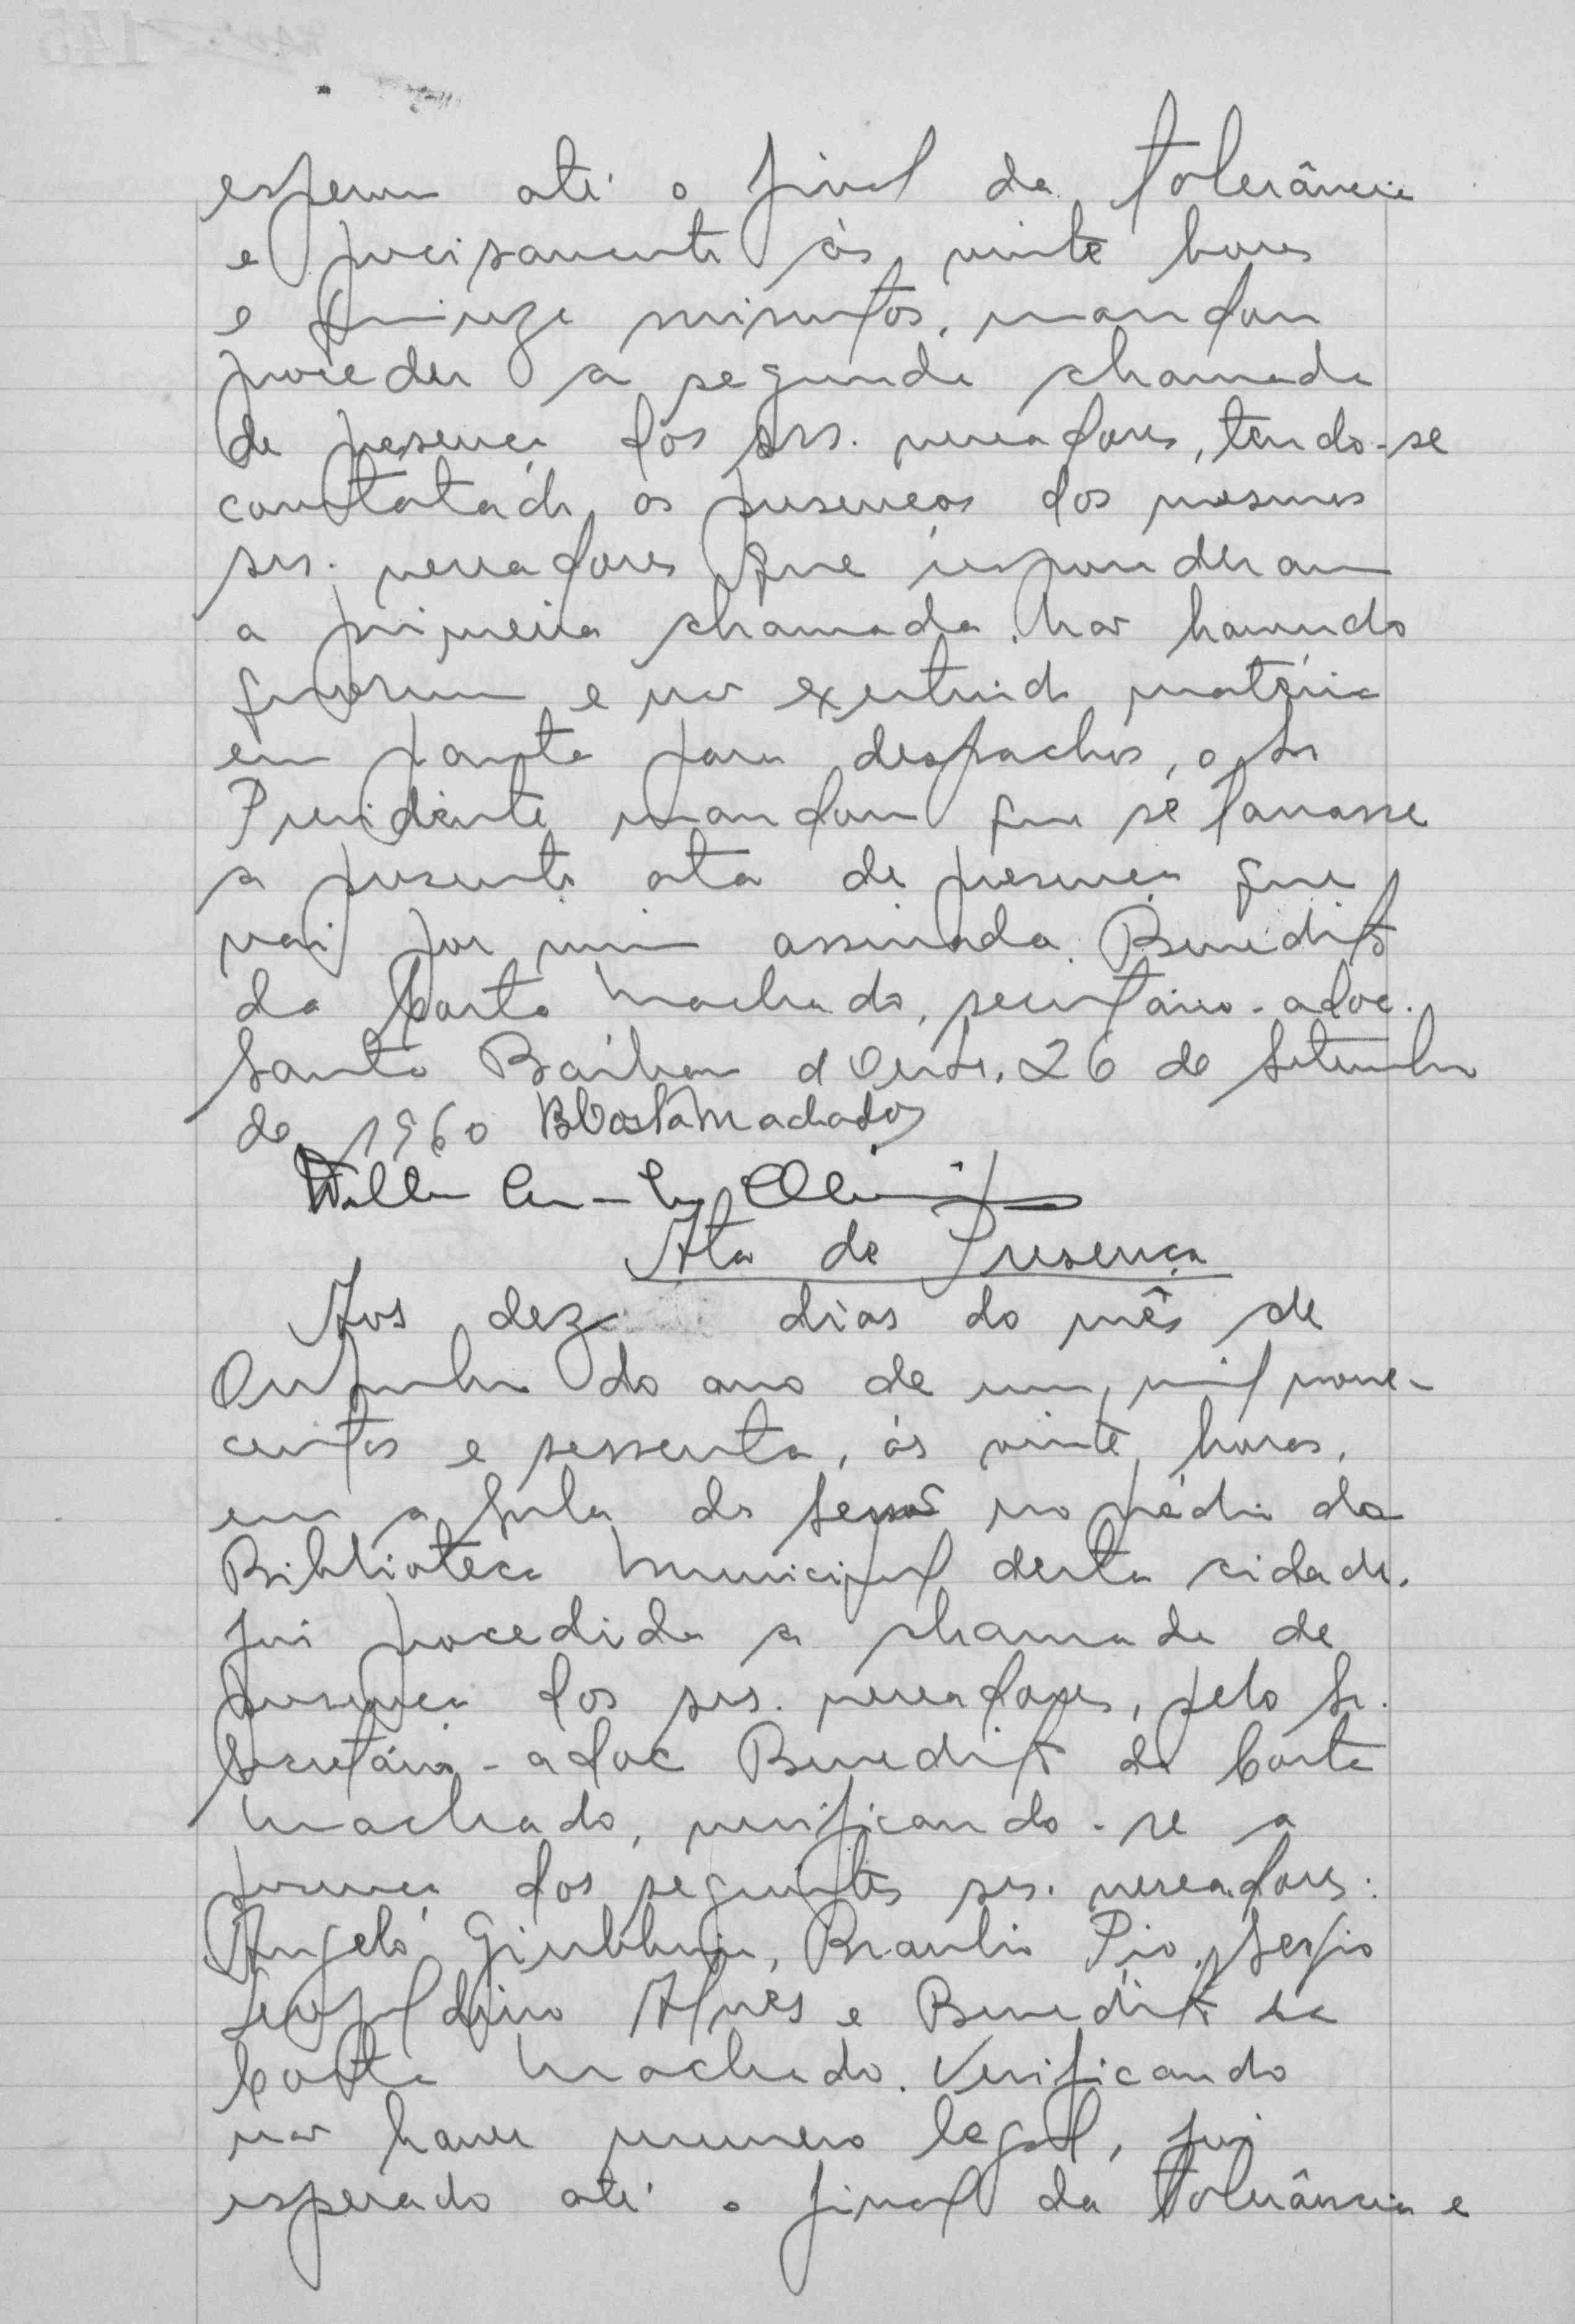 esperou até o final da tolerância
e precisamente às vinte horas
e quinze minutos, mandou
proceder a segunda chamada
de presença dos srs. vereadores, tendo-se
constatado as presenças dos mesmos
srs. vereadores que responderam
a primeira chamada. Não havendo
quorum e não existindo matéria
em pauta para despachos, o Sr
Presidente mandou que se lavrasse
a presente ata de presença que
vai por mim assinada. Benedito
da Costa Machado, secretário-adoc.
Santa Bárbara d'Oeste, 26 de Setembro
de 1960 BCostaMachado
Oliveira
Ata de Presença
Aos dez dias do mês de
Outubro do ano de um mil nove-
centos e sessenta, ás vinte horas,
em a sala da sessão no prédio da
Biblioteca Municipal desta cidade,
foi procedida a chamada de
presença dos srs. vereadores, pelo Sr.
Secretário-adoc Benedito da Costa
Machado, verificando-se a
presença dos seguintes srs. vereadores:
Angelo Giubbina, Braulio Pio, Sergio
Leopoldino Alves e Benedito da
Costa Machado. Verificando
não haver numero legal, foi
esperado até o final da tolerância e